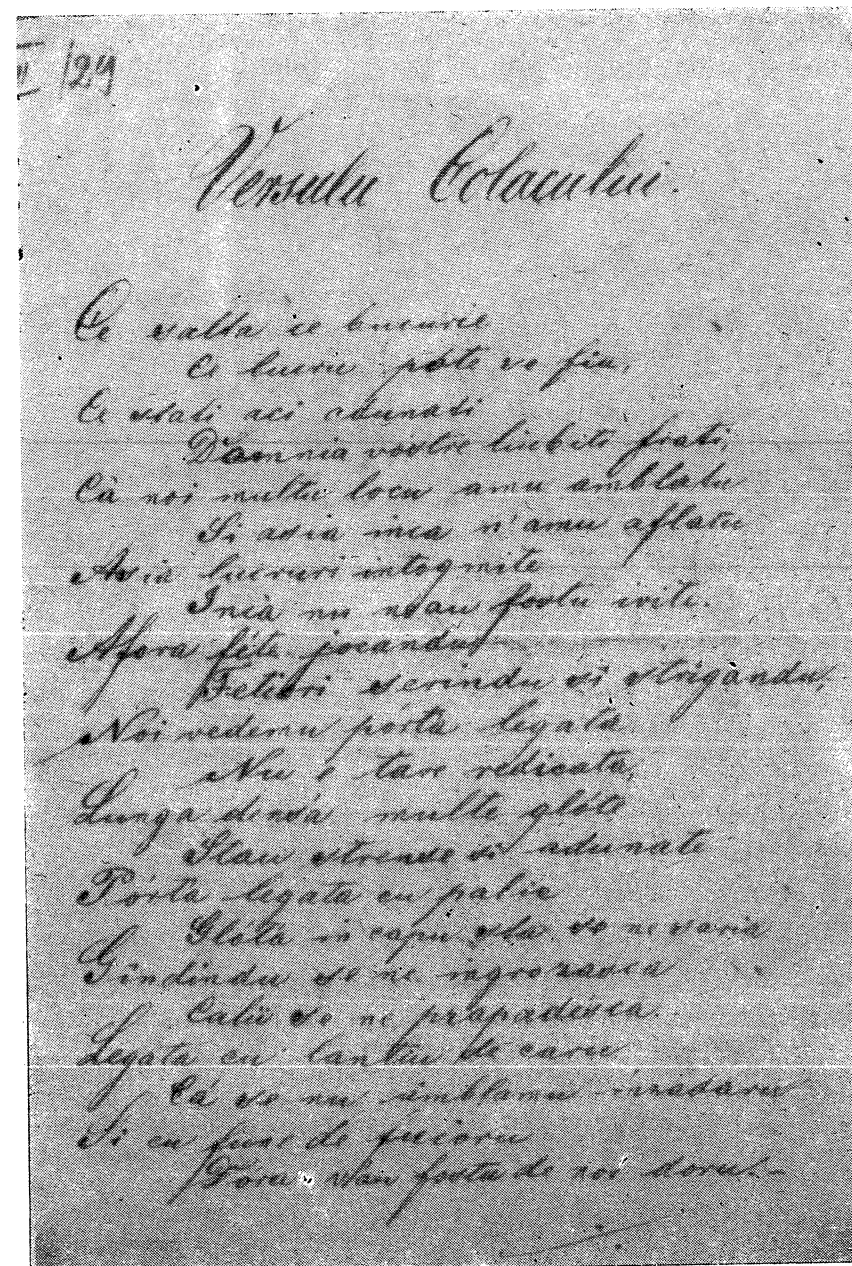 VI /24
Versulu Colacului.
Ce salta ce bucurie
Ce lucru pote se fia,
Ce stati aci adunati
Domnia vostre liubiti frati,
Cà noi multu locu amu amblatu
Si asia inca n'amu aflatu
Asia lucruri intogmite
Incà nu s'au fostu ivite.
Afora féte jocandu
Feciori serindu si strigandu,
Noi vedemu pórta legata
Nu e tare redicata,
Lunga densa multe glóte
Stau strense si adunate
Pórta legata cu palie
Glóta in capu sta se ne saria
Gîndindu se ne ingrozasca
Caii se ne prapadésca.
Legata cu lantiu de caru
Cà se nu îmblamu inzadaru
Si cu fune de fuioru
Dóra v'au fostu de noi doru!-